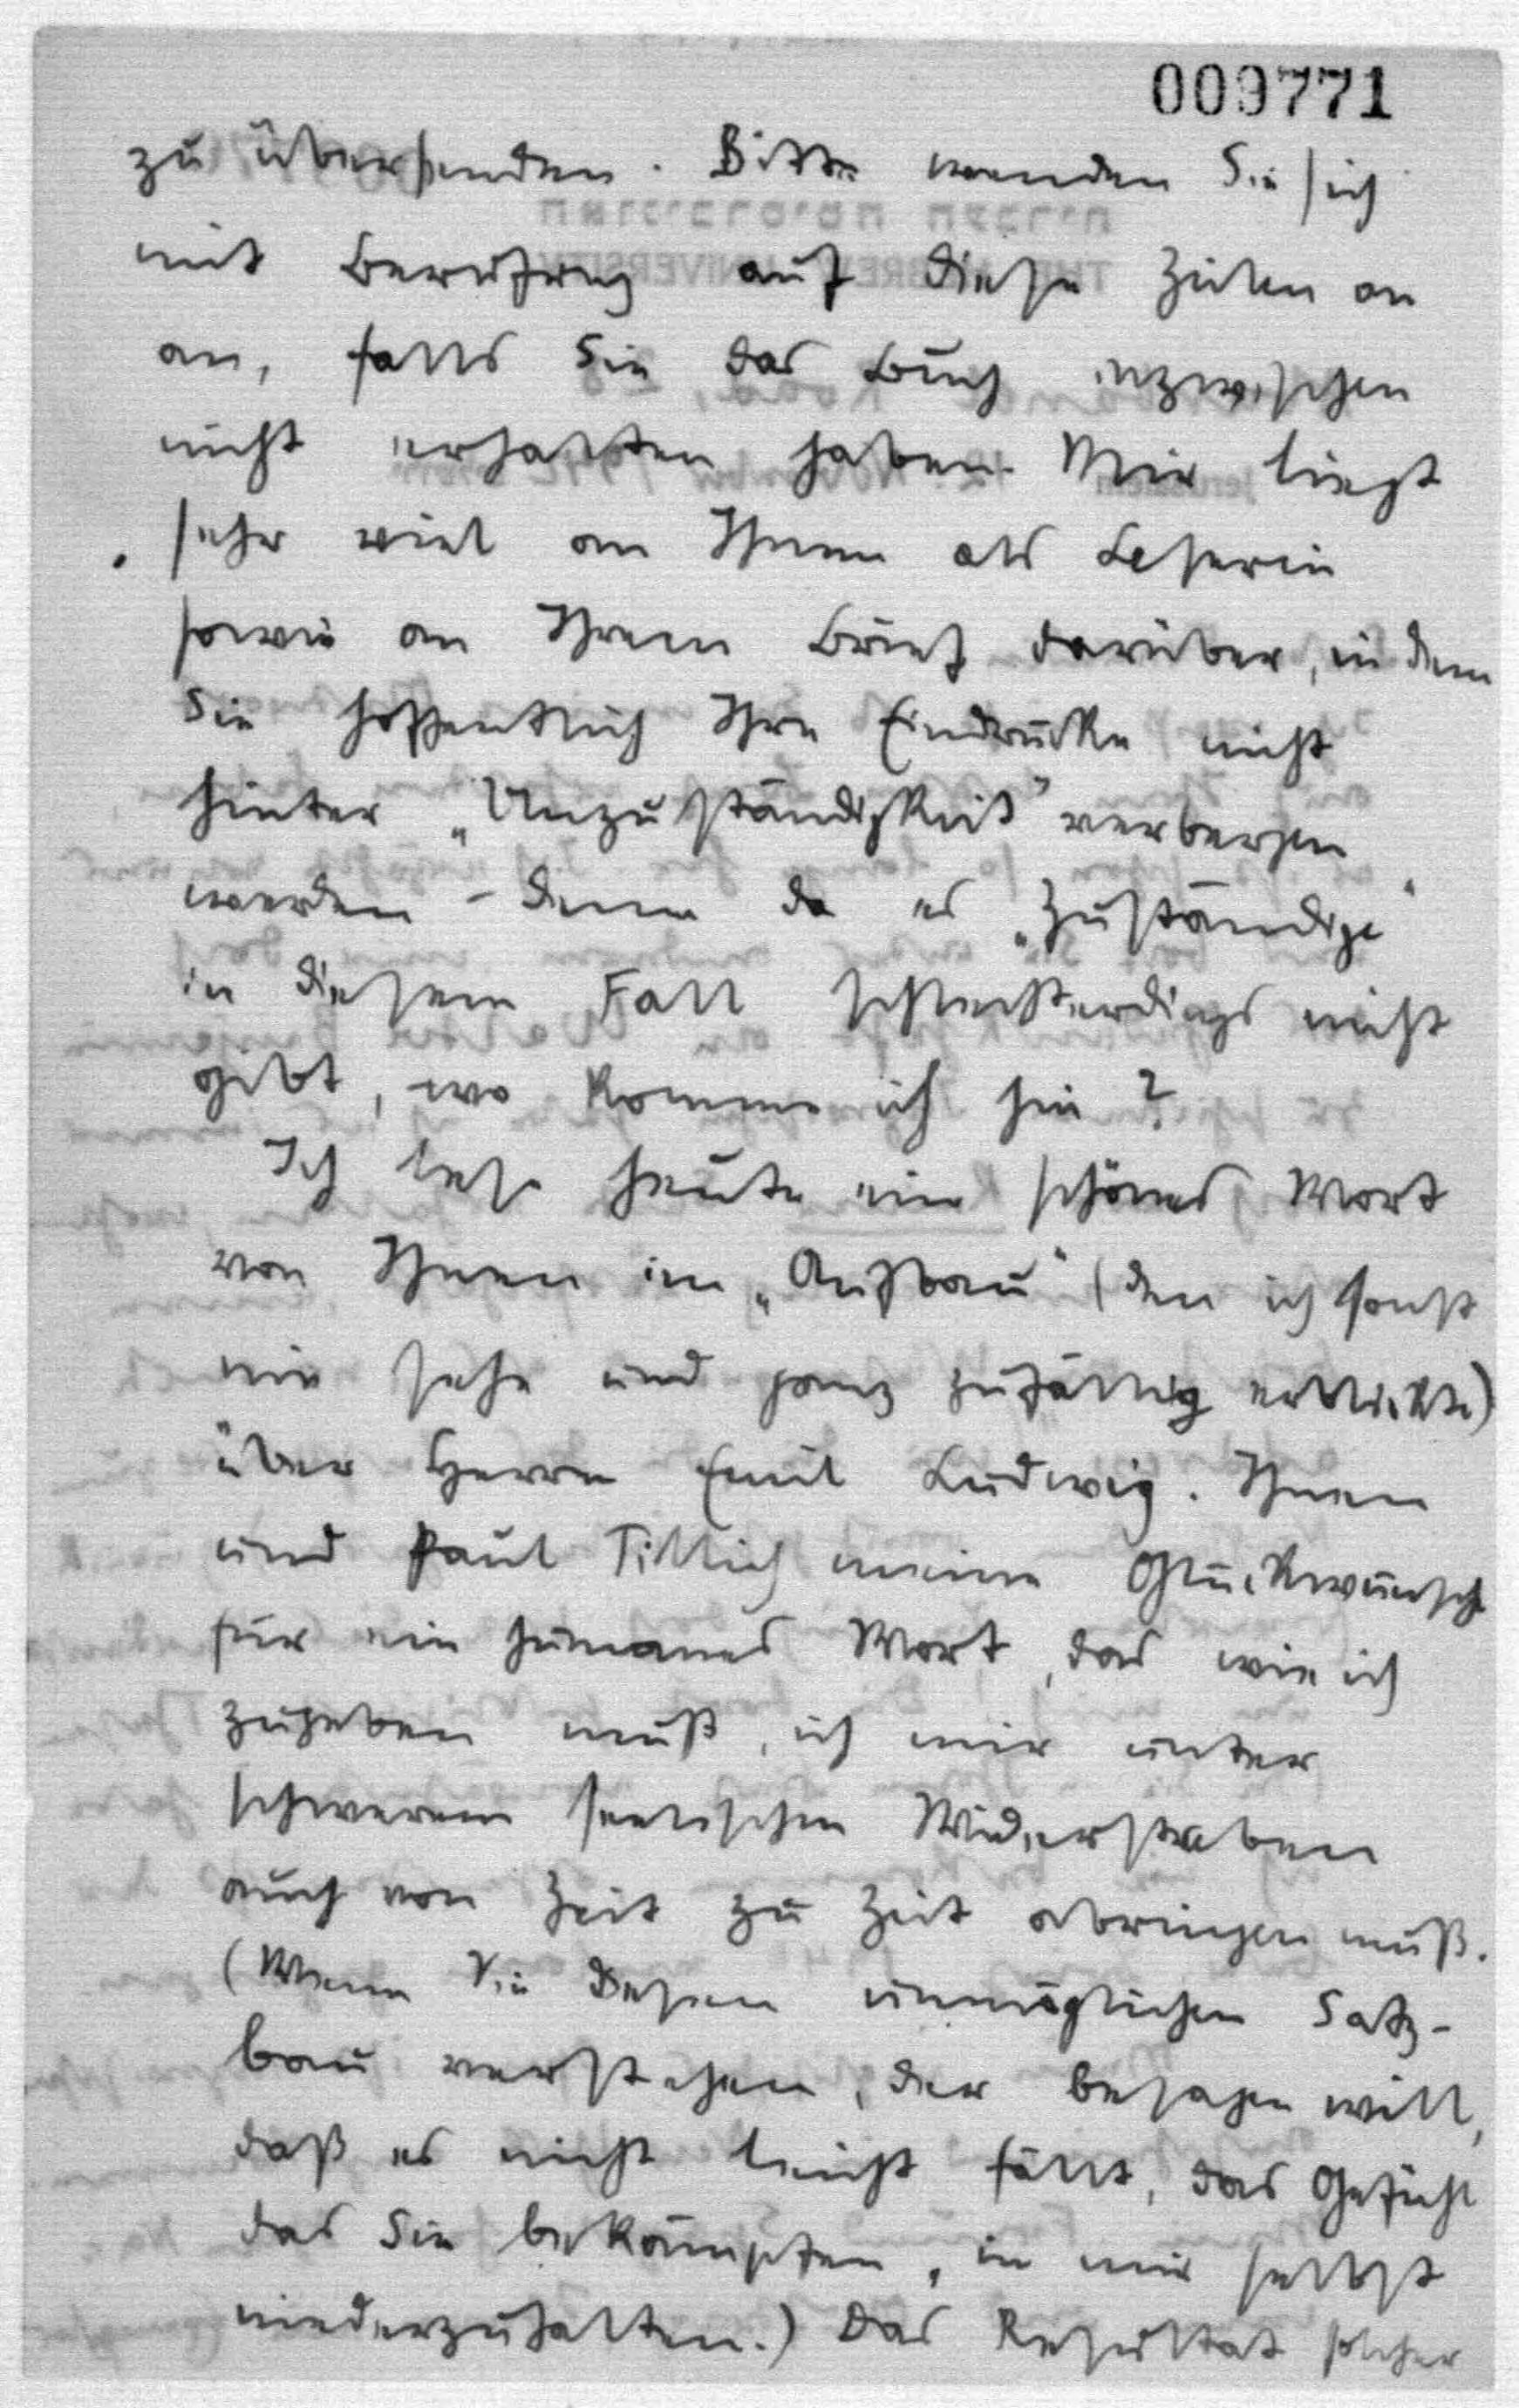 009771
zu übersenden. Bitte wenden Sie sich
mit Berufung auf diese Zeilen an
an, falls Sie das Buch inzwischen
nicht erhalten haben. Mir liegt
sehr viel an Ihnen als Leserin
sowie an Ihrem Brief darüber, in dem
Sie hoffentlich Ihre Eindrücke nicht
hinter „Unzuständigkeit" verbergen
werden – denn da es „Zuständige"
in diesem Fall schlechterdings nicht
gibt, wo komme ich hin?
Ich lese heute ein schönes Wort
von Ihnen im „Aufbau" (den ich sonst
nie sehe und ganz zufällig erblickte)
über Herrn Emil Ludwig. Ihnen
und Paul Tillich meine Glückwunsch
für ein humanes Wort, das wie ich
zugeben muß, ich mir unter
schwerem seelischen Widerstreben
auch von Zeit zu Zeit abringen muß.
(Wenn Sie diesen unmöglichen Satz-
bau verstehen, der besagen will,
daß es nicht leicht fällt, das Gefühl
das Sie bekämpfen, in mir selbst
niederzuhalten.) Das Resultat solcher